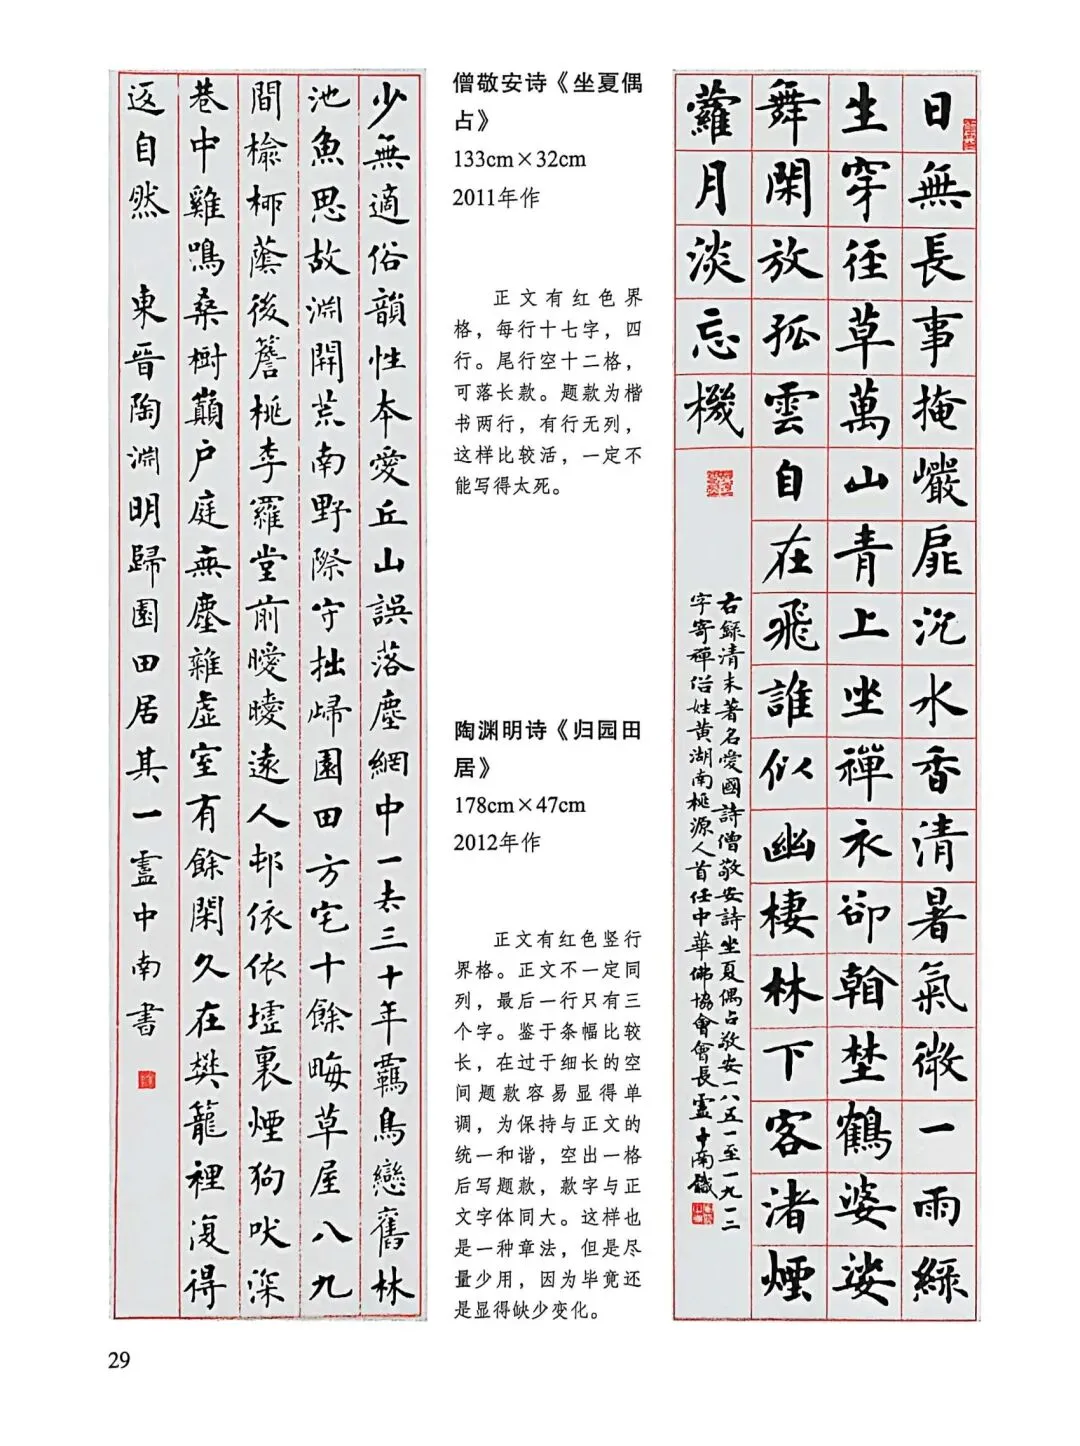 日無長事掩巖扉沉水香清暑氣微一雨綠
生穿徑草萬山青上坐禪衣卻翰埜鶴婆娑
舞閑放孤雲自在飛誰似幽棲林下客渚煙
蘿月淡忘機
右錄清末著名愛國詩僧敬安詩坐夏偶占敬安一八五一至一九一二
字寄禪俗姓黃湖南桃源人首任中華佛協會會長靈中南識
僧敬安诗《坐夏偶
占》
133cm×32cm
2011年作
正文有红色界
格，每行十七字，四
行。尾行空十二格，
可落长款。题款为楷
书两行，有行无列，
这样比较活，一定不
能写得太死。
陶渊明诗《归园田
居》
178cm×47cm
2012年作
正文有红色竖行
界格。正文不一定同
列，最后一行只有三
个字。鉴于条幅比较
长，在过于细长的空
间题款容易显得单
调，为保持与正文的
统一和谐，空出一格
后写题款，款字与正
文字体同大。这样也
是一种章法，但是尽
量少用，因为毕竟还
是显得缺少变化。
少無適俗韻性本愛丘山誤落塵網中一去三十年羈鳥戀舊林
池魚思故淵開荒南野際守拙歸園田方宅十餘畮草屋八九
間榆柳蔭後簷桃李羅堂前曖曖遠人邨依依墟裏煙狗吠深
巷中雞鳴桑樹巔户庭無塵雜虛室有餘閑久在樊籠裡復得
返自然 東晉陶淵明歸園田居其一靈中南書
29